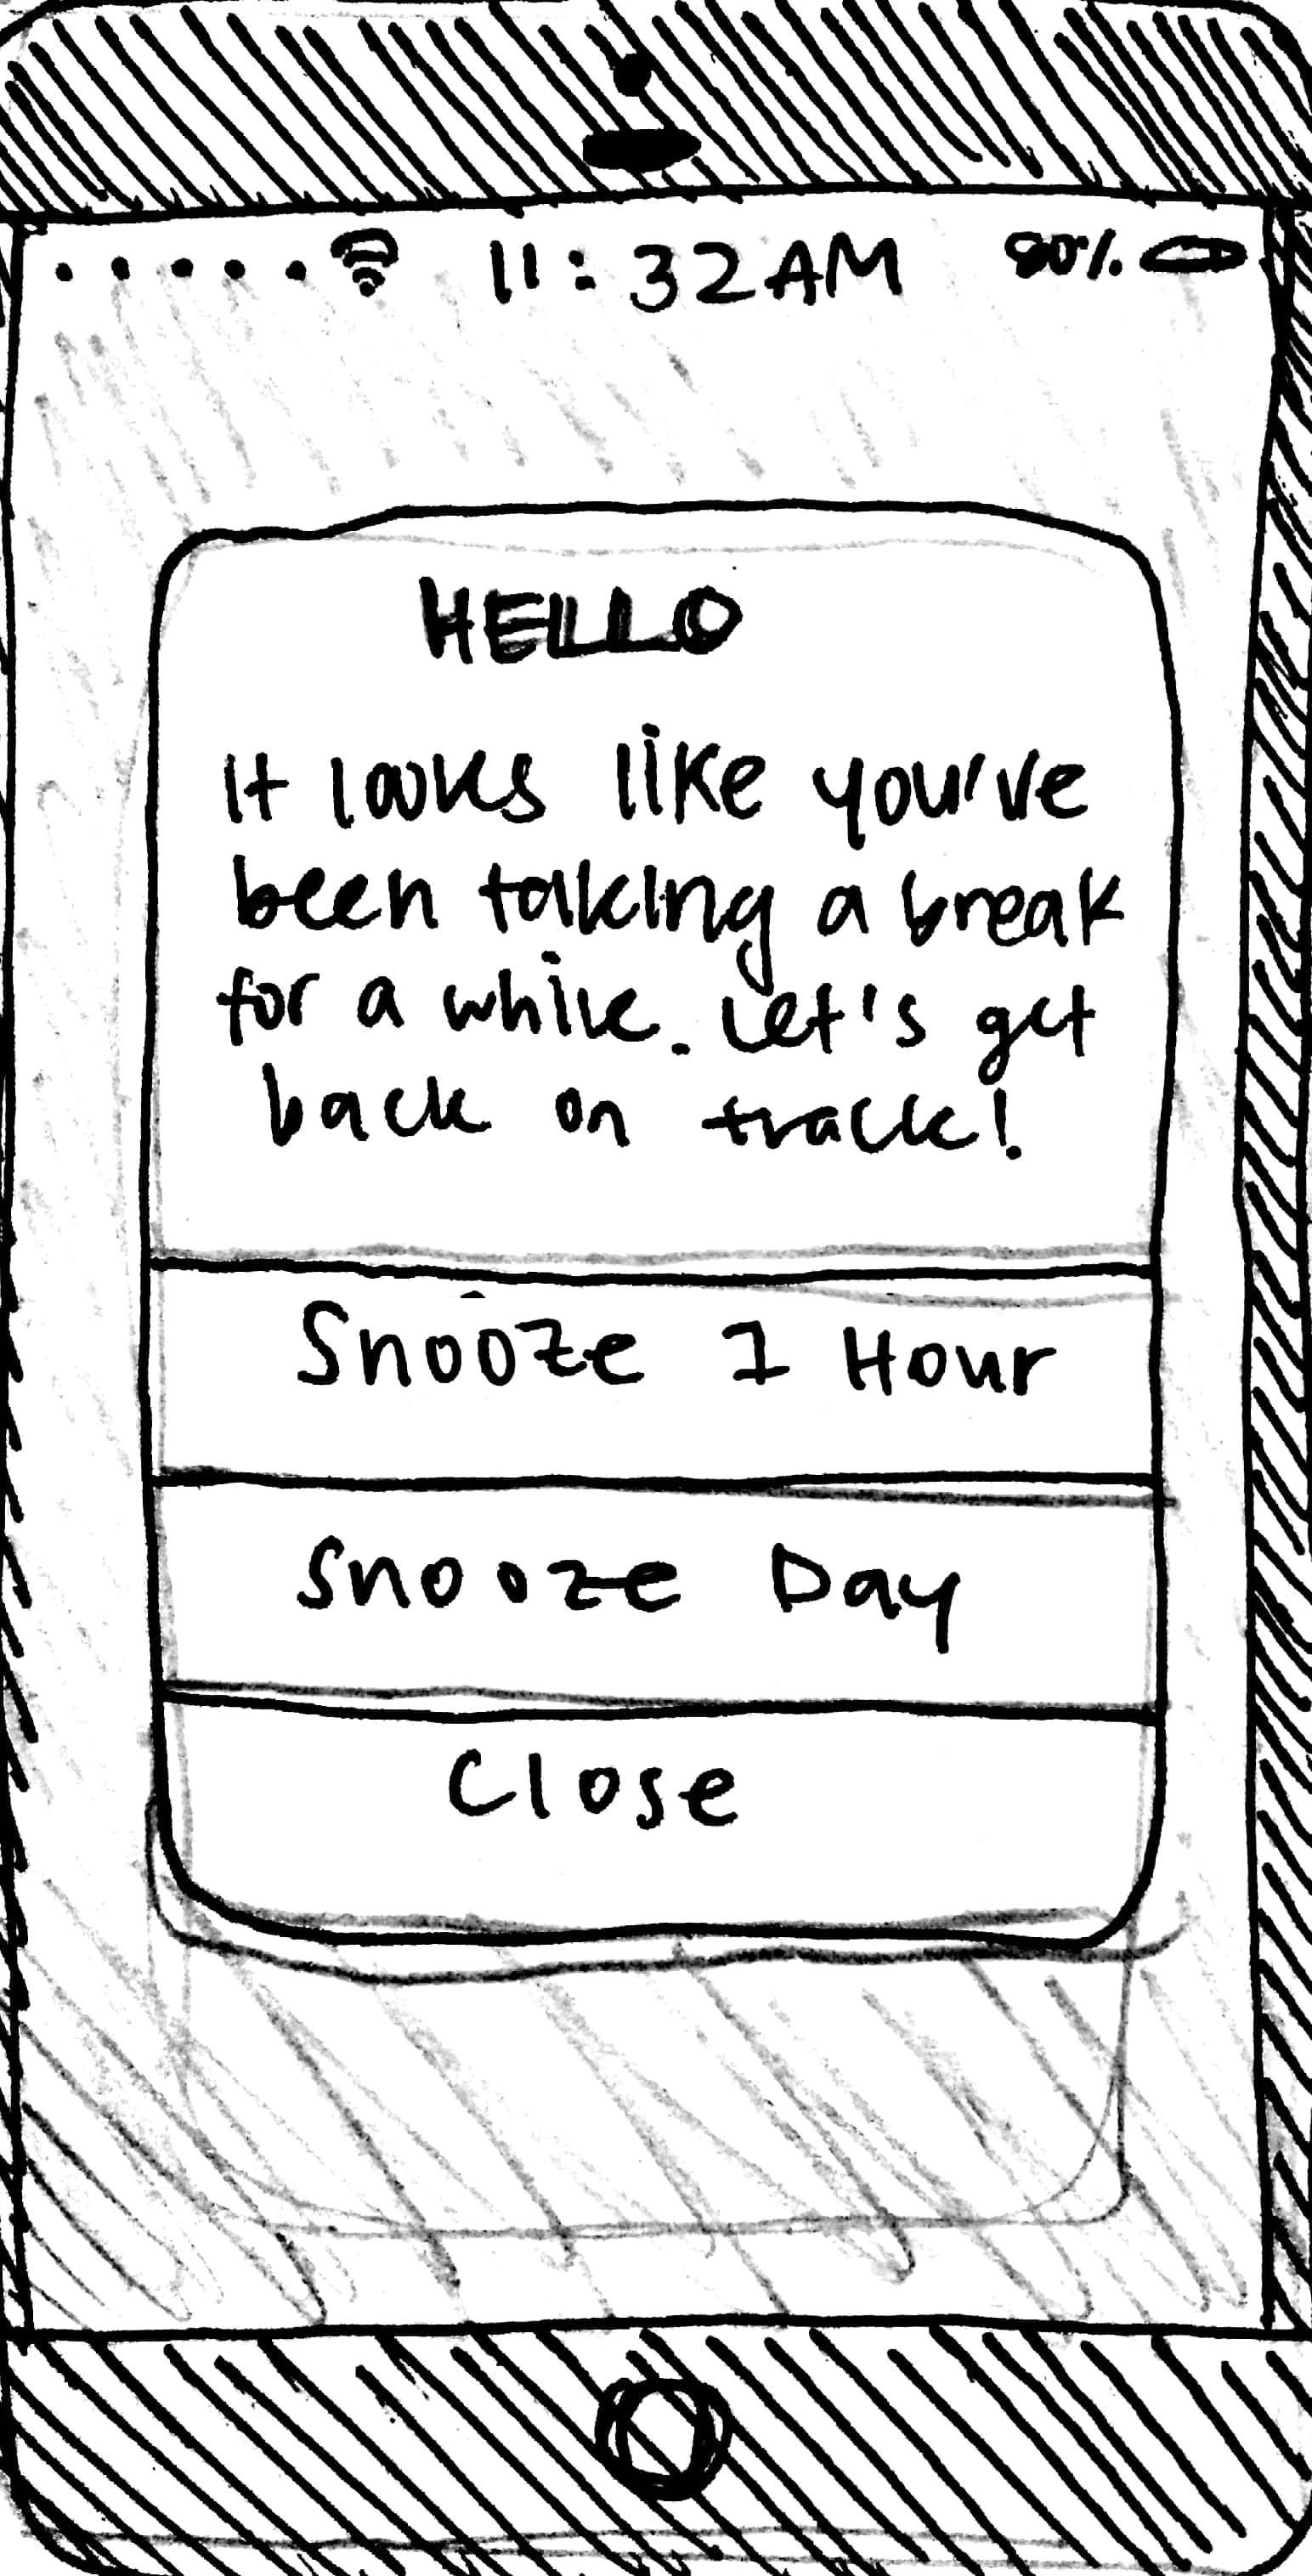 11:32AM 80%
HELLO
It looks like you've
been taking a break
for a while. Let's get
back on track!
Snooze 1 Hour
Snooze Day
Close